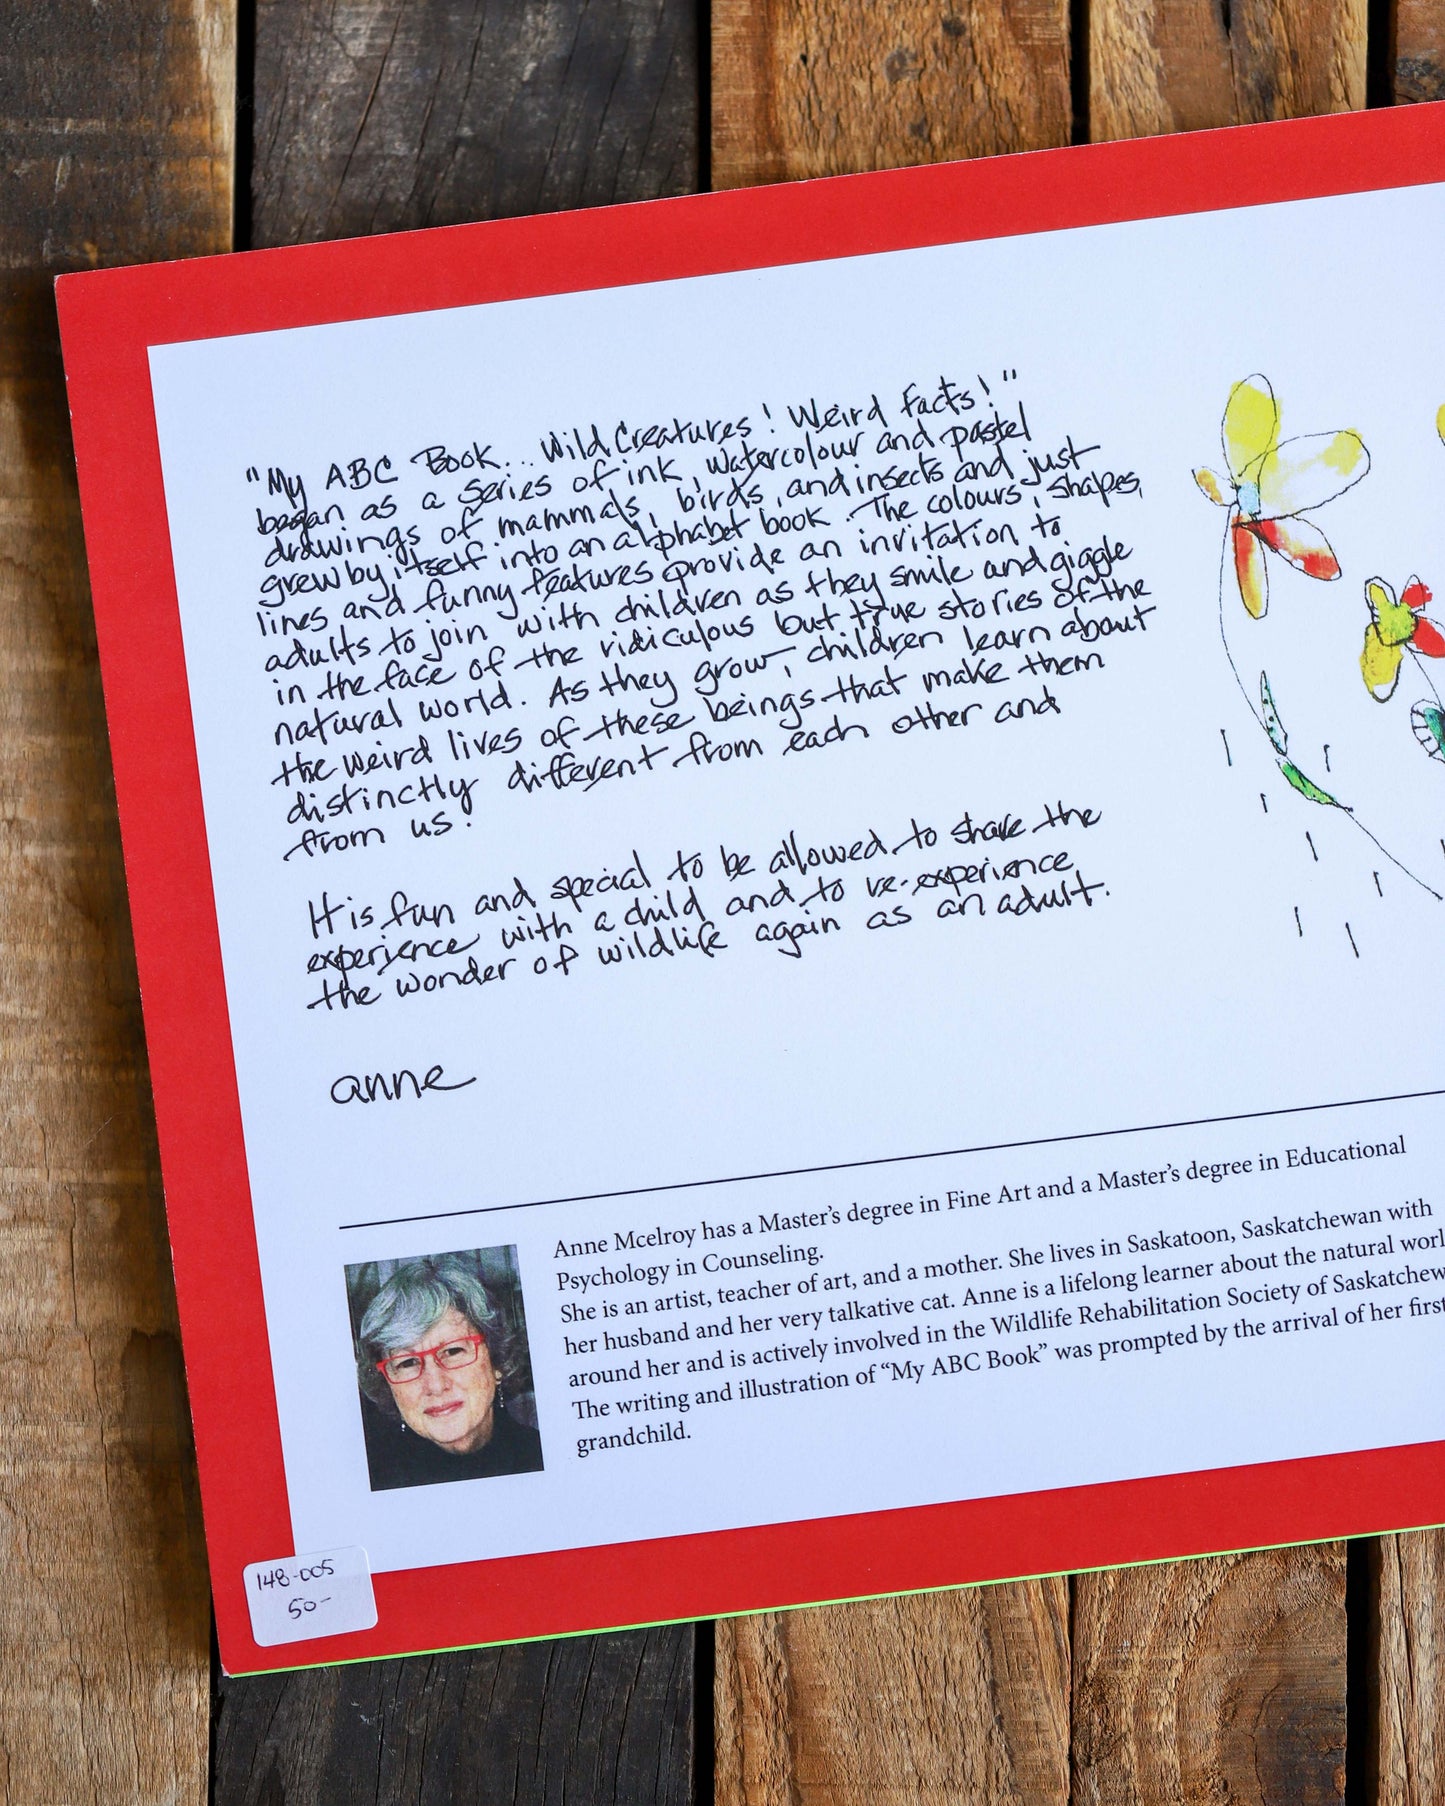 "My ABC Book... Wild Creatures! Weird Facts!"
began as a series of ink, watercolour and pastel
drawings of mammals, birds, and insects and just
grew by itself into an alphabet book. The colours, shapes,
lines and funny features provide an invitation to
adults to join with children as they smile and giggle
in the face of the ridiculous but true stories of the
natural world. As they grow, children learn about
the weird lives of these beings that make them
distinctly different from each other and
from us!
It is fun and special to be allowed to share the
experience with a child and to re-experience
the wonder of wildlife again as an adult.
anne
Anne Mcelroy has a Master's degree in Fine Art and a Master's degree in Educational
Psychology in Counseling.
She is an artist, teacher of art, and a mother. She lives in Saskatoon, Saskatchewan with
her husband and her very talkative cat. Anne is a lifelong learner about the natural worl
around her and is actively involved in the Wildlife Rehabilitation Society of Saskatchew
The writing and illustration of “My ABC Book” was prompted by the arrival of her first
grandchild.
148-005
50-